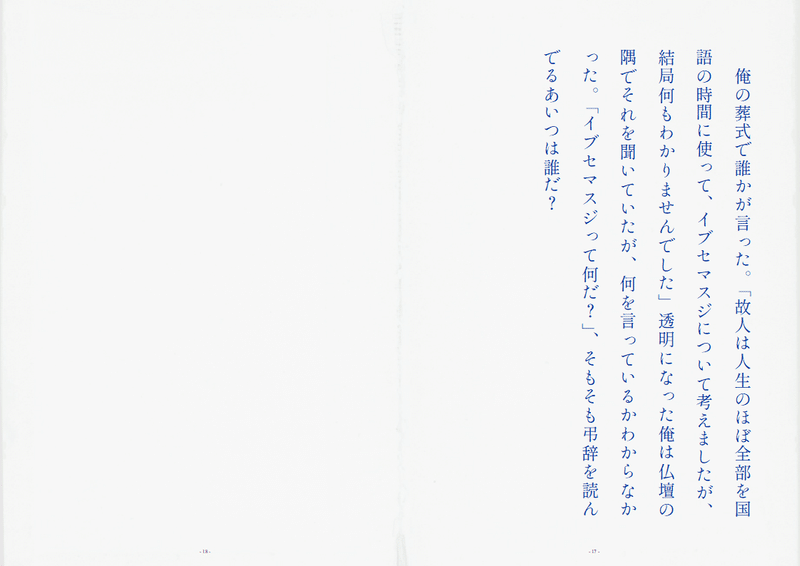 俺の葬式で誰かが言った。「故人は人生のほぼ全部を国
語の時間に使って、イブセマスジについて考えましたが、
結局何もわかりませんでした」透明になった俺は仏壇の
隅でそれを聞いていたが、何を言っているかわからなか
った。「イブセマスジって何だ？」、そもそも弔辞を読ん
でるあいつは誰だ？
- 17 -
- 18 -